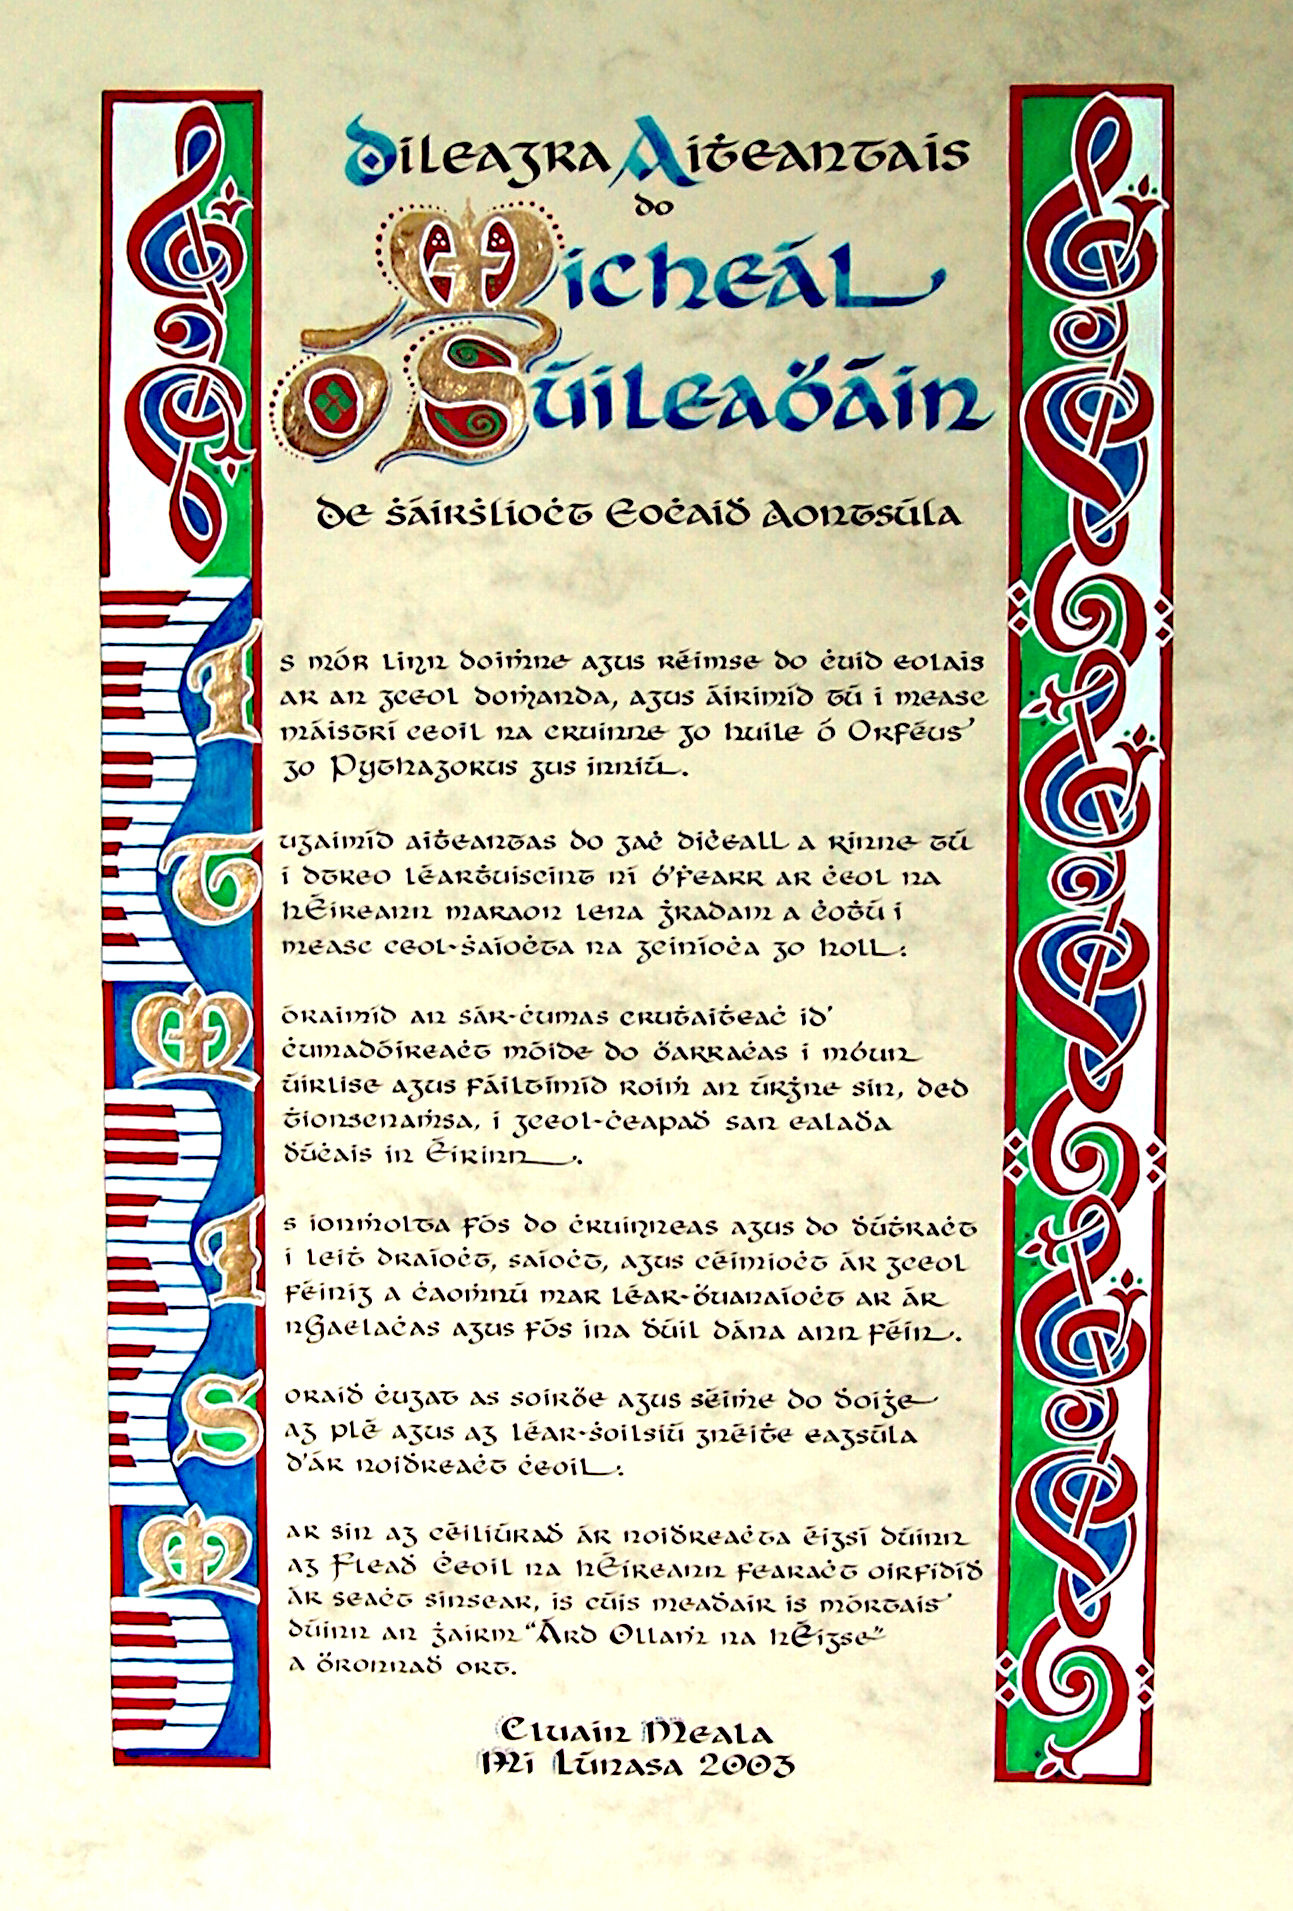 Dileagra Aiṫeantais
do
Micheál
Ó Súileaḃáin
de ṡáirṡlioċt Eoċaiḋ Aontsúla
Is mór linn doiṁne agus réimse do ċuid eolais
ar an gceol doṁanda, agus áirimíd tú i measc
máistrí ceoil na cruinne go huile ó Orféus
go Pythagorus gus inniú.
Tugaimíd aiṫeantas do gaċ díċeall a rinne tú
i dtreo léarṫuiscint ní b'ḟearr ar ċeol na
hÉireann maraon lena ġradam a ċoṫú i
measc ceol-ṡaíoċta na gciníoċa go holl:
Móraimíd an sár-ċumas cruṫaiṫeaċ id'
ċumadóireaċt móide do ḃarraċas i mbun
úirlise agus fáiltímíd roiṁ an úrġne sin, ded
ṫionscnaṁsa, i gceol-ċeapaḋ san ealaḋa
ḋúċais in Éirinn.
Is ionṁolta fós do ċruinneas agus do ḋúṫraċt
i leiṫ draíoċt, saíoċt, agus céimíoċt ár gceol
féinig a ċaoṁnú mar léar-ḃuanaíoċt ar ár
nGaelaċas agus fós ina ḋúil dána ann féin.
Soraiḋ ċugat as soirḃe agus séiṁe do ḋoiġe
ag plé agus ag léar-ṡoilsiú gnéiṫe eagsúla
d'ár noiḋreaċt ċeoil:
Mar sin ag céiliúraḋ ár noiḋreaċta éigsí dúinn
ag Fleaḋ Ċeoil na hÉireann fearaċt oirfidíḋ
ár seaċt sinsear, is cúis meaḋair is mórtais
dúinn an ġairm "Árd Ollaṁ na hÉigse"
a ḃronnaḋ ort.
Cluain Meala
Mí Lúnasa 2003